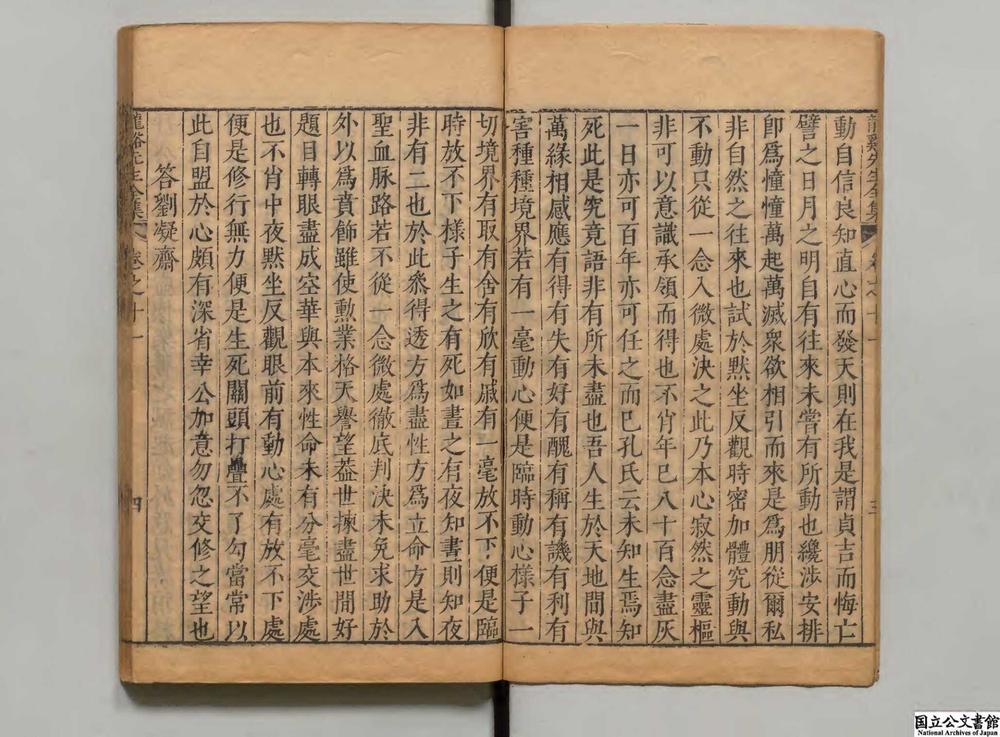 動自信良知直心而發天則在我是謂貞吉而悔亡
譬之日月之明自有往來未嘗有所動也纔涉安排
即爲憧憧萬起萬滅衆欲相引而來是爲朋從爾私
非自然之往來也試於默坐反觀時密加體究動與
不動只從一念入微處決之此乃本心寂然之靈樞
非可以意識承領而得也不肖年已八十百念盡灰
一日亦可百年亦可任之而已孔氏云未知生焉知
死此是究竟語非有所未盡也吾人生於天地間與
萬緣相感應有得有失有好有醜有稱有譏有利有
害種種境界若有一毫動心便是臨時動心樣子一
切境界有取有舍有欣有戚有一毫放不下便是臨
時放不下樣子生之有死如晝之有夜知晝則知夜
非有二也於此叅得透方爲盡性方爲立命方是入
聖血脉路若不從一念微處徹底判決未免求助於
外以爲賁飾雖使勲業格天譽望葢世揀盡世間好
題目轉眼盡成空華與本來性命未有分毫交涉處
也不肖中夜默坐反觀眼前有動心處有放不下處
便是修行無力便是生死關頭打疊不了勾當常以
此自盟於心頗有深省幸公加意勿忽交修之望也
答劉凝齋
龍谿先生全集
卷之十一
三
龍谿先生全集
卷之十一
四
国立公文書館
National Archives of Japan